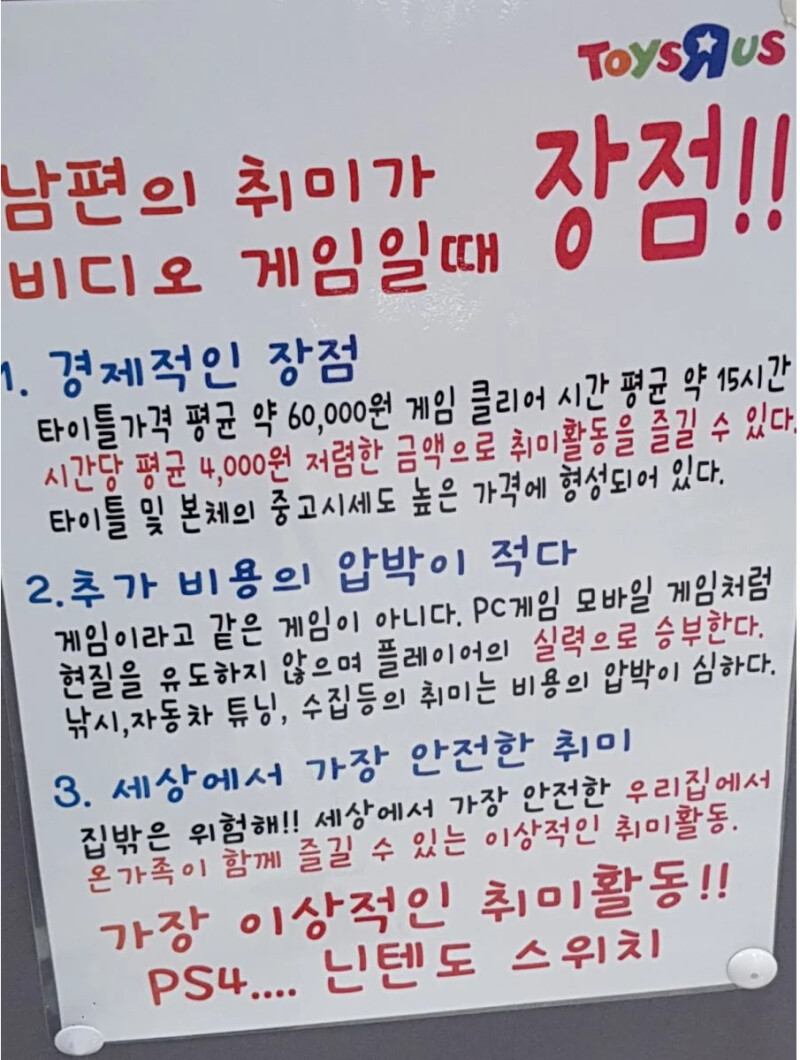 TOYSRUS
남편의 취미가
비디오 게임일때 장점!!
1. 경제적인 장점
타이틀가격 평균 약 60,000원 게임 클리어 시간 평균 약 15시간
시간당 평균 4,000원 저렴한 금액으로 취미활동을 즐길 수 있다.
타이틀 및 본체의 중고시세도 높은 가격에 형성되어 있다.
2.추가 비용의 압박이 적다
게임이라고 같은 게임이 아니다. PC게임 모바일 게임처럼
현질을 유도하지 않으며 플레이어의 실력으로 승부한다.
낚시,자동차 튜닝, 수집등의 취미는 비용의 압박이 심하다.
3. 세상에서 가장 안전한 취미
집밖은 위험해!! 세상에서 가장 안전한 우리집에서
온가족이 함께 즐길 수 있는 이상적인 취미활동.
가장 이상적인 취미활동!!
PS4.... 닌텐도 스위치